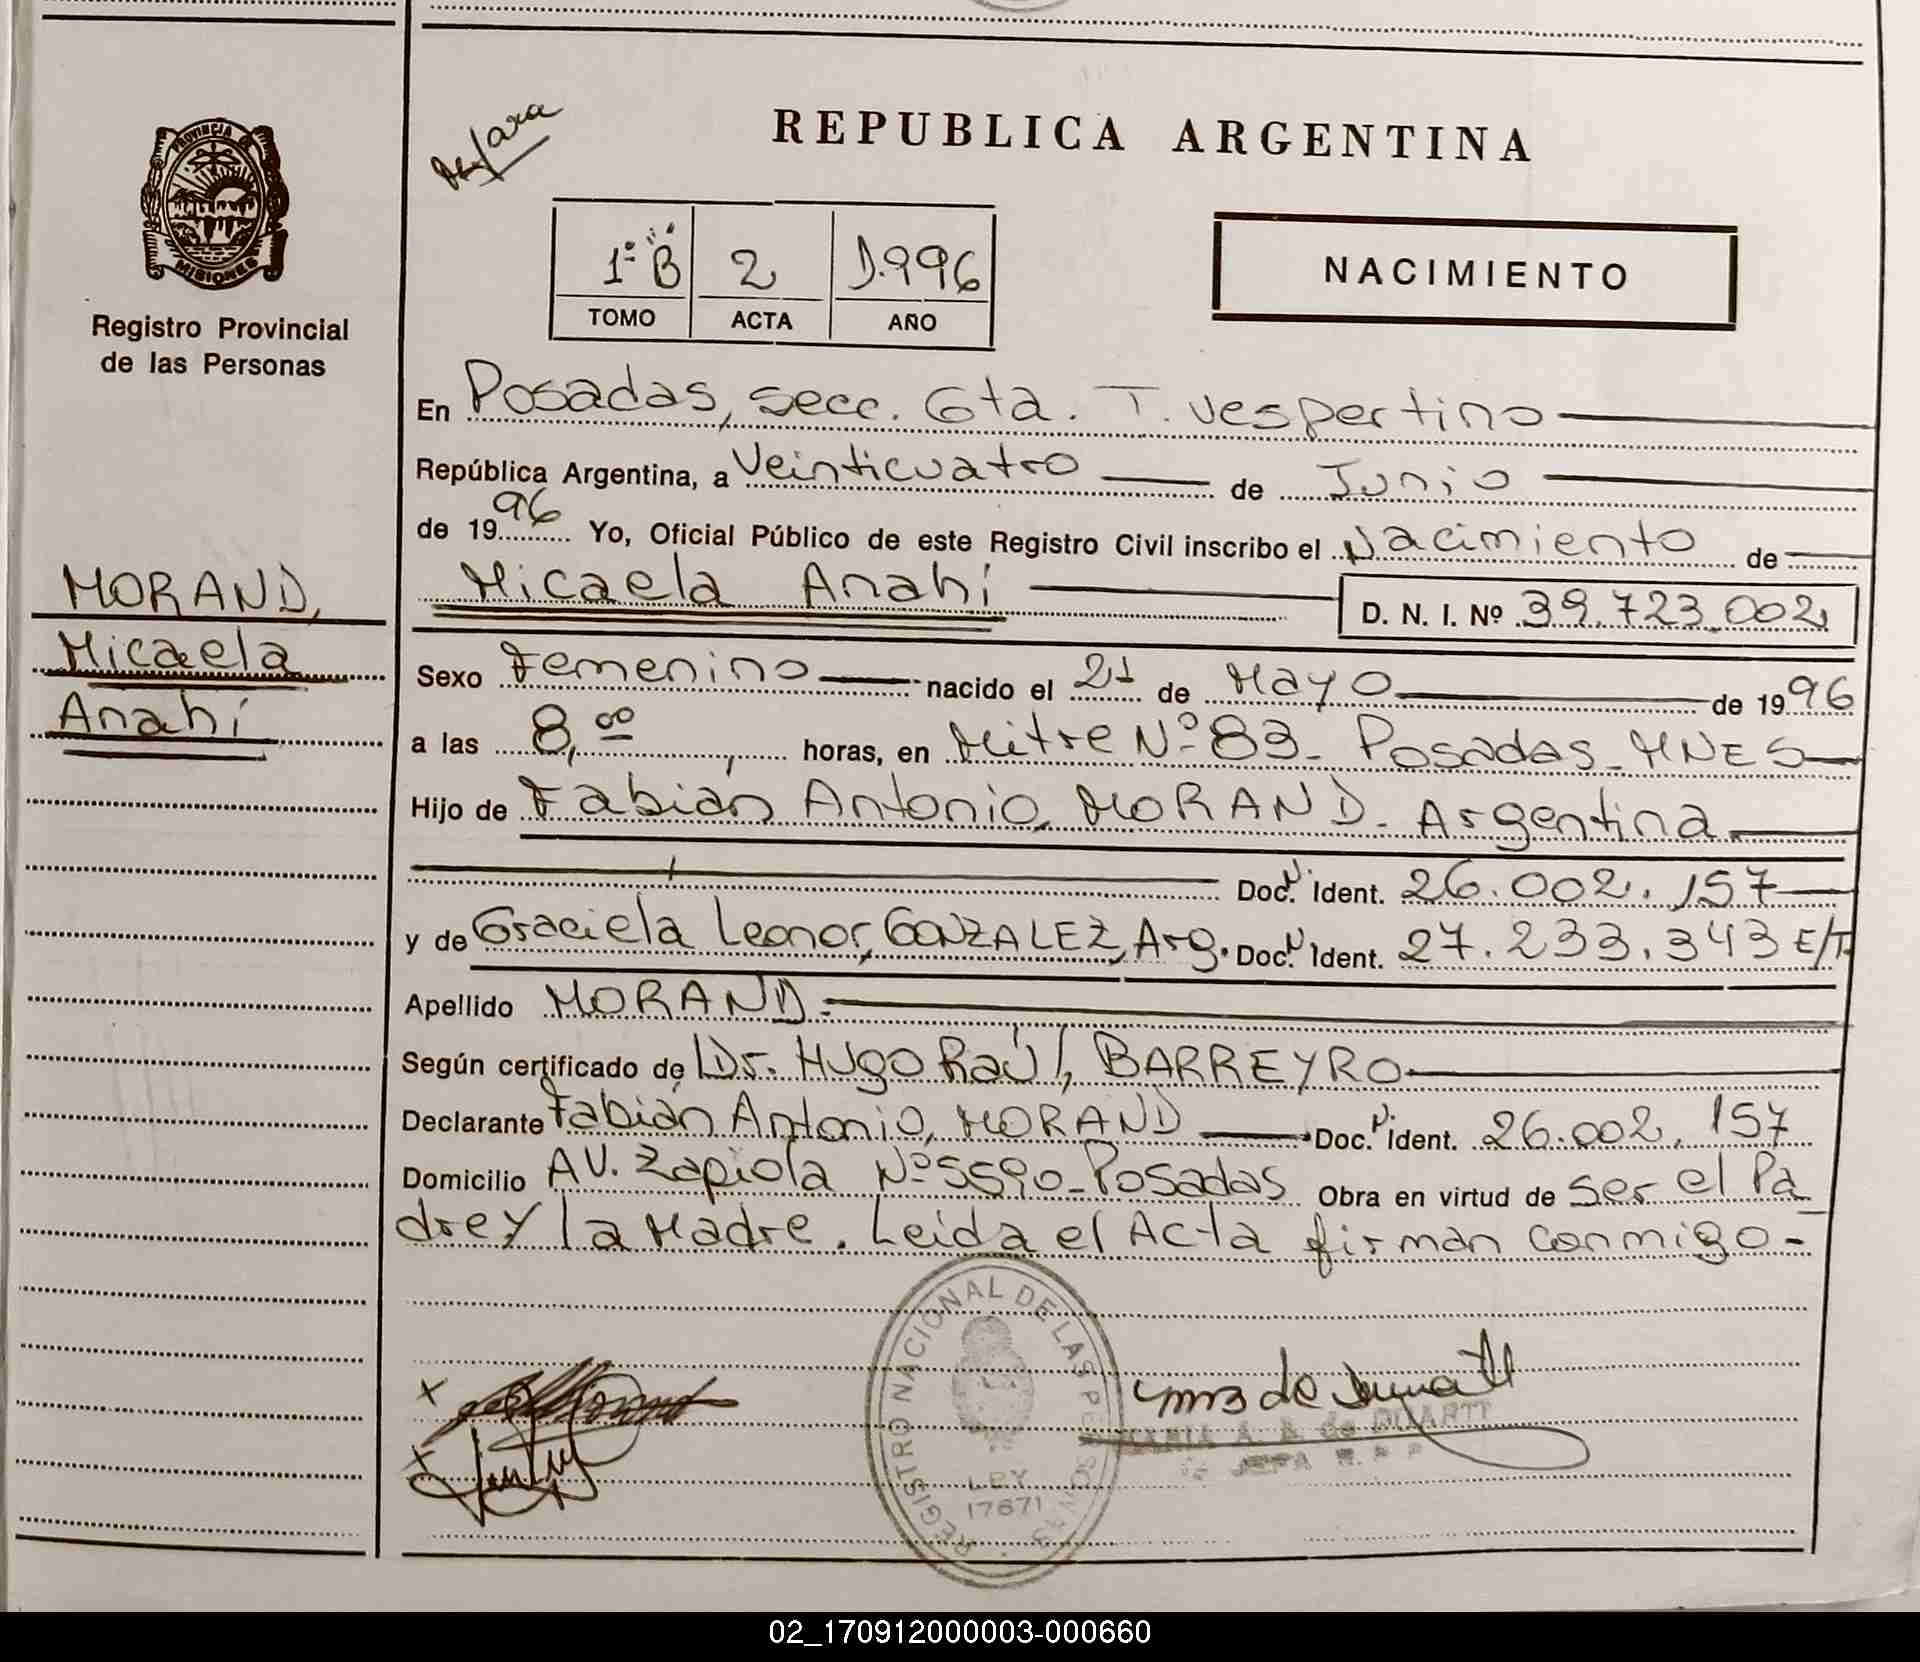 PROVINCIA DE
MISIONES
Registro Provincial
de las Personas
MORAND,
Micaela
Anahí
REPUBLICA ARGENTINA
1º B 2 1.996
TOMO ACTA AÑO
NACIMIENTO
En Posadas, secc. 6ta. T. Vespertino
República Argentina, a Veinticuatro de Junio
de 1996 Yo, Oficial Público de este Registro Civil inscribo el Nacimiento de
Micaela Anahí D. N. I. Nº 39.723.002
Sexo Femenino nacido el 21 de Mayo de 1996
a las 8,00 horas, en Mitre Nº 83 - Posadas - MNES
Hijo de Fabián Antonio, MORAND - Argentina
Doc. N. Ident. 26.002.157
y de Graciela Leonor, GONZALEZ, Arg. Doc. N. Ident. 27.233.343 E/T
Apellido MORAND.
Según certificado de Dr. Hugo Raúl, BARREYRO
Declarante Fabián Antonio, MORAND Doc. N. Ident. 26.002.157
Domicilio AV. Zapiola Nº 5590 - Posadas Obra en virtud de ser el Pa
dre y la Madre. Leida el Acta firman conmigo -
REGISTRO NACIONAL DE LAS PERSONAS
LEY
17671
MARIA A. B. de DUARTE
JEFA R.P.P
02_170912000003-000660